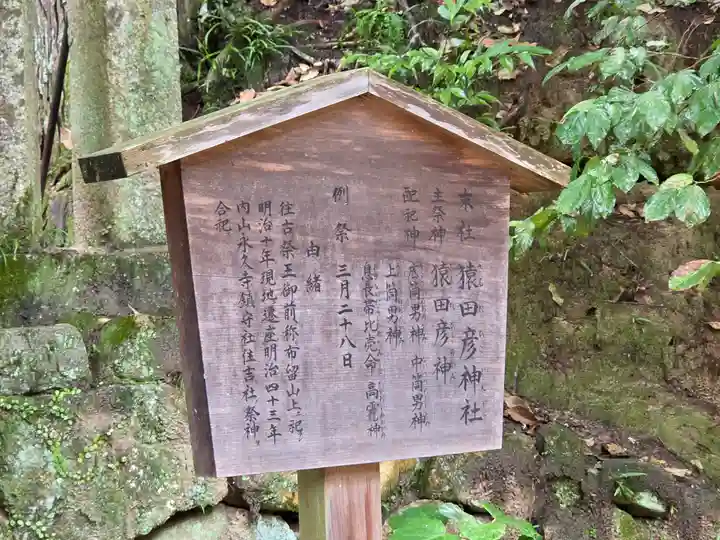 末社 猿田彦神社
主祭神 猿田彦神
配祀神 底筒男神 中筒男神
上筒男神
息長帯比売命 高靇神
例祭 三月二十八日
由緒
往古祭王御前称布留山上ニ祀ル
明治十年現地遷座明治四十三年
内山永久寺鎮守社住吉社祭神ヲ
合祀